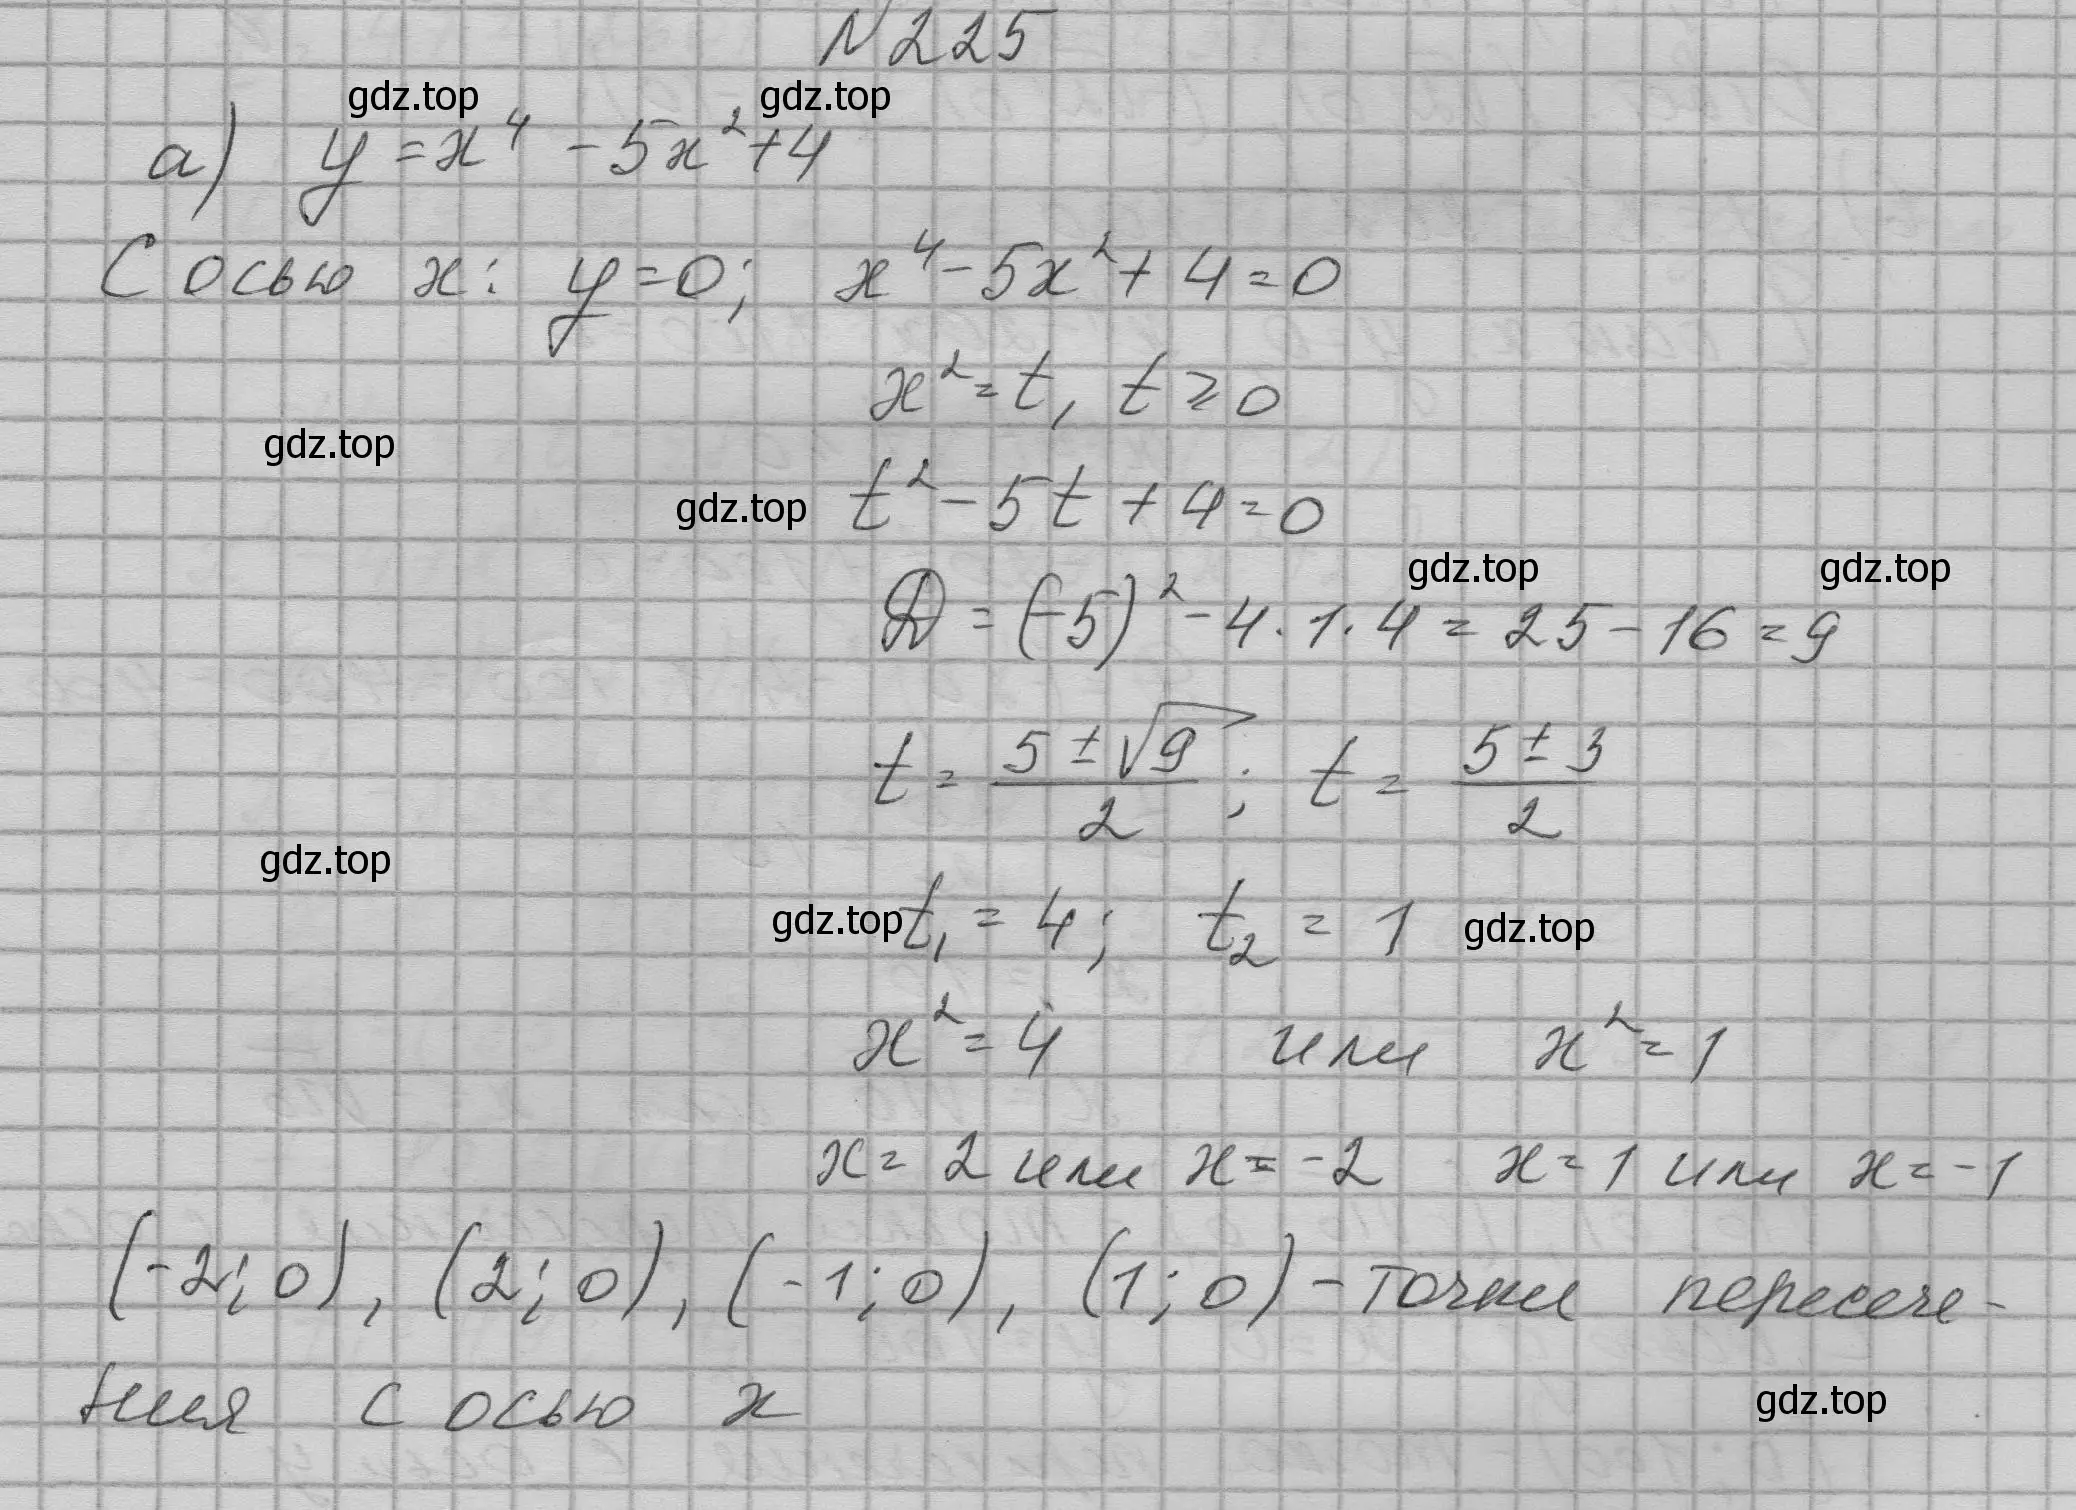 N 225
gdz.top gdz.top
а) y = x⁴ - 5x² + 4
С осью x: y = 0; x⁴ - 5x² + 4 = 0
x² = t, t ≥ 0
gdz.top
gdz.top t² - 5t + 4 = 0
gdz.top gdz.top
D = (-5)² - 4·1·4 = 25 - 16 = 9
t = (5 ± √9)/2; t = (5 ± 3)/2
gdz.top
gdz.top t₁ = 4; t₂ = 1 gdz.top
x² = 4 или x² = 1
x = 2 или x = -2 x = 1 или x = -1
(-2; 0), (2; 0), (-1; 0), (1; 0) - точки пересече-
ния с осью x
gdz.top